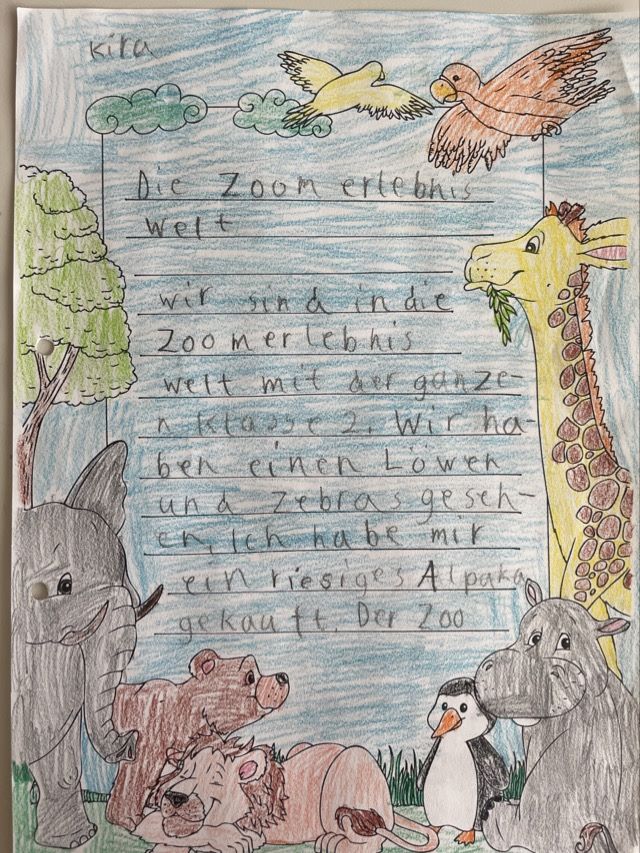 Kira
Die Zoom erlebnis
welt
wir sind in die
Zoom erlebhis
welt mit der ganze-
n Klasse 2. Wir ha-
ben einen Löwen
und Zebras geseh-
en. Ich habe mir
ein riesiges Alpaka
gekauft. Der Zoo